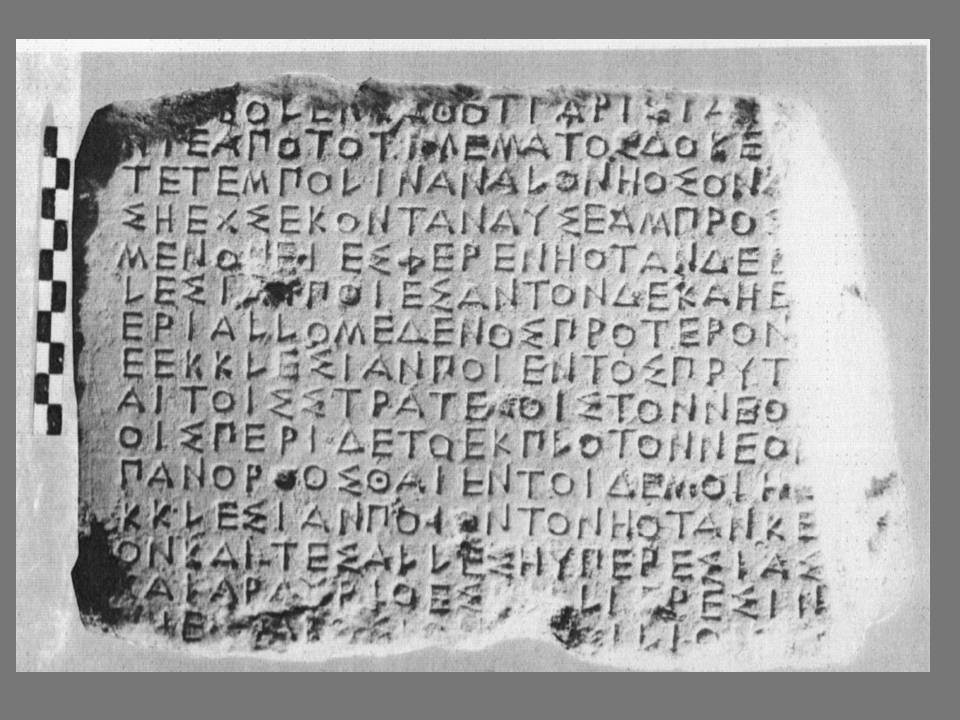 ΒΟΛΕΙΚΑΘΟΤΙΑΡΙΣΤΑ
ΙΤΕΑΠΟΤΟΤΙΜΕΜΑΤΟΣΔΟΚΕ
ΤΕΤΕΜΠΟΛΙΝΑΝΑΛΟΝΗΟΣΟΝ
ΣΗΕΧΣΕΚΟΝΤΑΝΑΥΣΕΑΜΠΡΟΣ
ΜΕΝΟΝΕΙΕΣΦΕΡΕΝΗΟΤΑΝΔΕΕ
ΛΕΣΙΑΜΠΟΙΕΣΑΝΤΟΝΔΕΚΑΗΕ
ΕΡΙΑΛΛΟΜΕΔΕΝΟΣΠΡΟΤΕΡΟΝ
ΕΕΚΚΛΕΣΙΑΝΠΟΙΕΝΤΟΣΠΡΥΤ
ΑΙΤΟΙΣΣΤΡΑΤΕΓΟΙΣΤΟΝΝΕΟ
ΟΙΣΠΕΡΙΔΕΤΟΕΚΠΛΟΤΟΝΝΕΟ
ΠΑΝΟΡΘΟΣΘΑΙΕΝΤΟΙΔΕΜΟΙΗ
ΚΚΛΕΣΙΑΝΠΟΙΟΝΤΟΝΗΟΤΑΝΚΕ
ΟΝΚΑΙΤΕΣΑΛΛΕΣΗΥΠΕΡΕΣΙΑΣ
ΚΑΙΑΡΓΥΡΙΟΕΣ ΛΛΙΕΡΕΣΙΝ